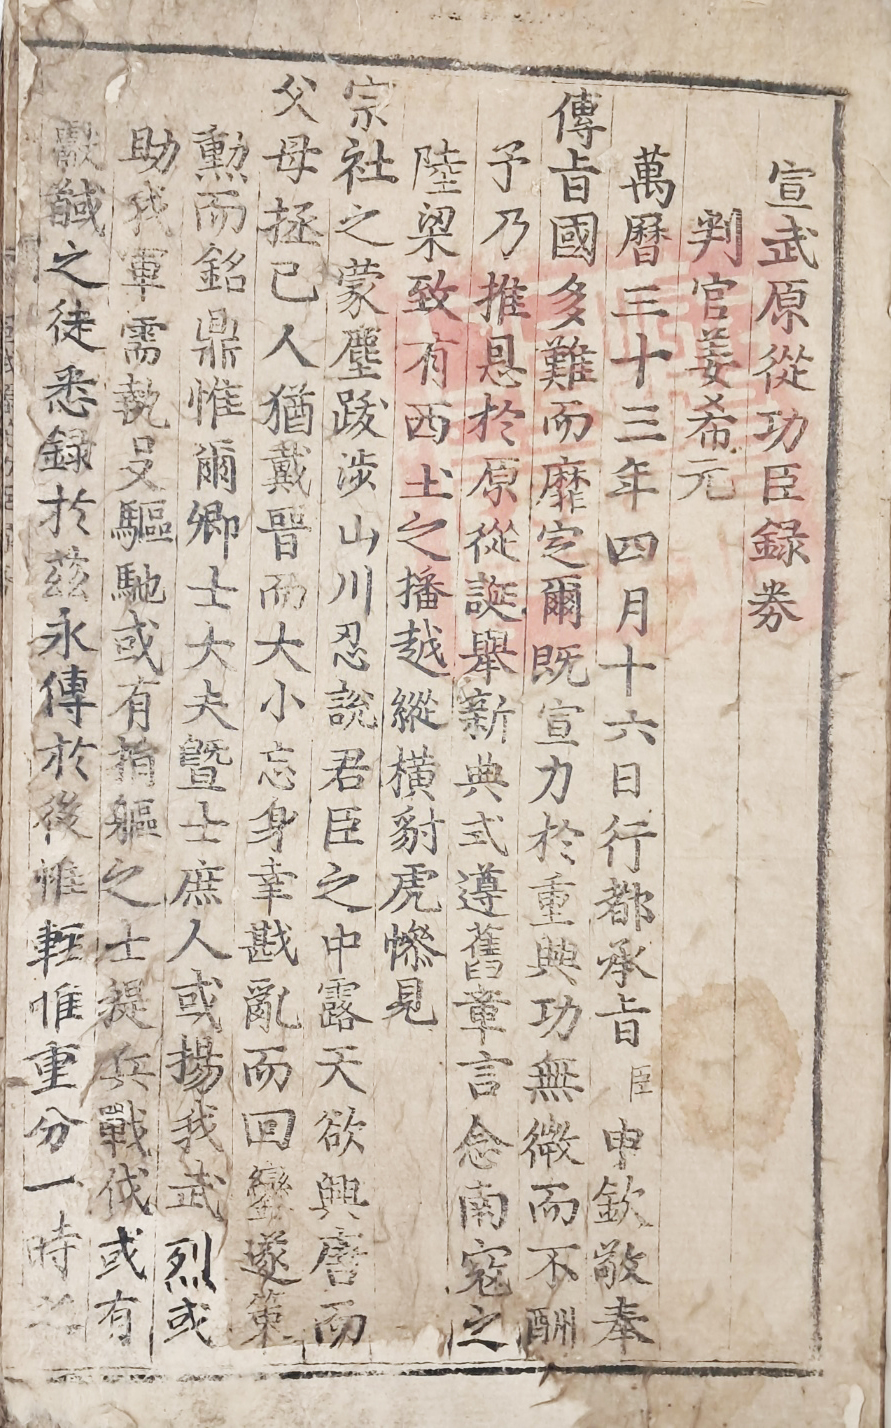 宣武原從功臣録券
判官姜希元
萬曆三十三年四月十六日行都承旨臣申欽敬奉
傳旨國多難而靡定爾既宣力於重興功無微而不酬
予乃推恩於原從誕舉新典式遵舊章言念南寇之
陸梁致有西土之播越縱橫豺虎慘見
宗社之蒙塵跋涉山川忍說君臣之中露天欲興唐而
父母拯己人猶戴晉而大小忘身幸戡亂而回鑾遂策
勳而銘鼎惟爾卿士大夫曁士庶人或揚我武烈或
助我軍需執殳驅馳或有捐軀之士提兵戰伐或有
獻馘之徒悉録於茲永傳於後惟輕惟重分一時之